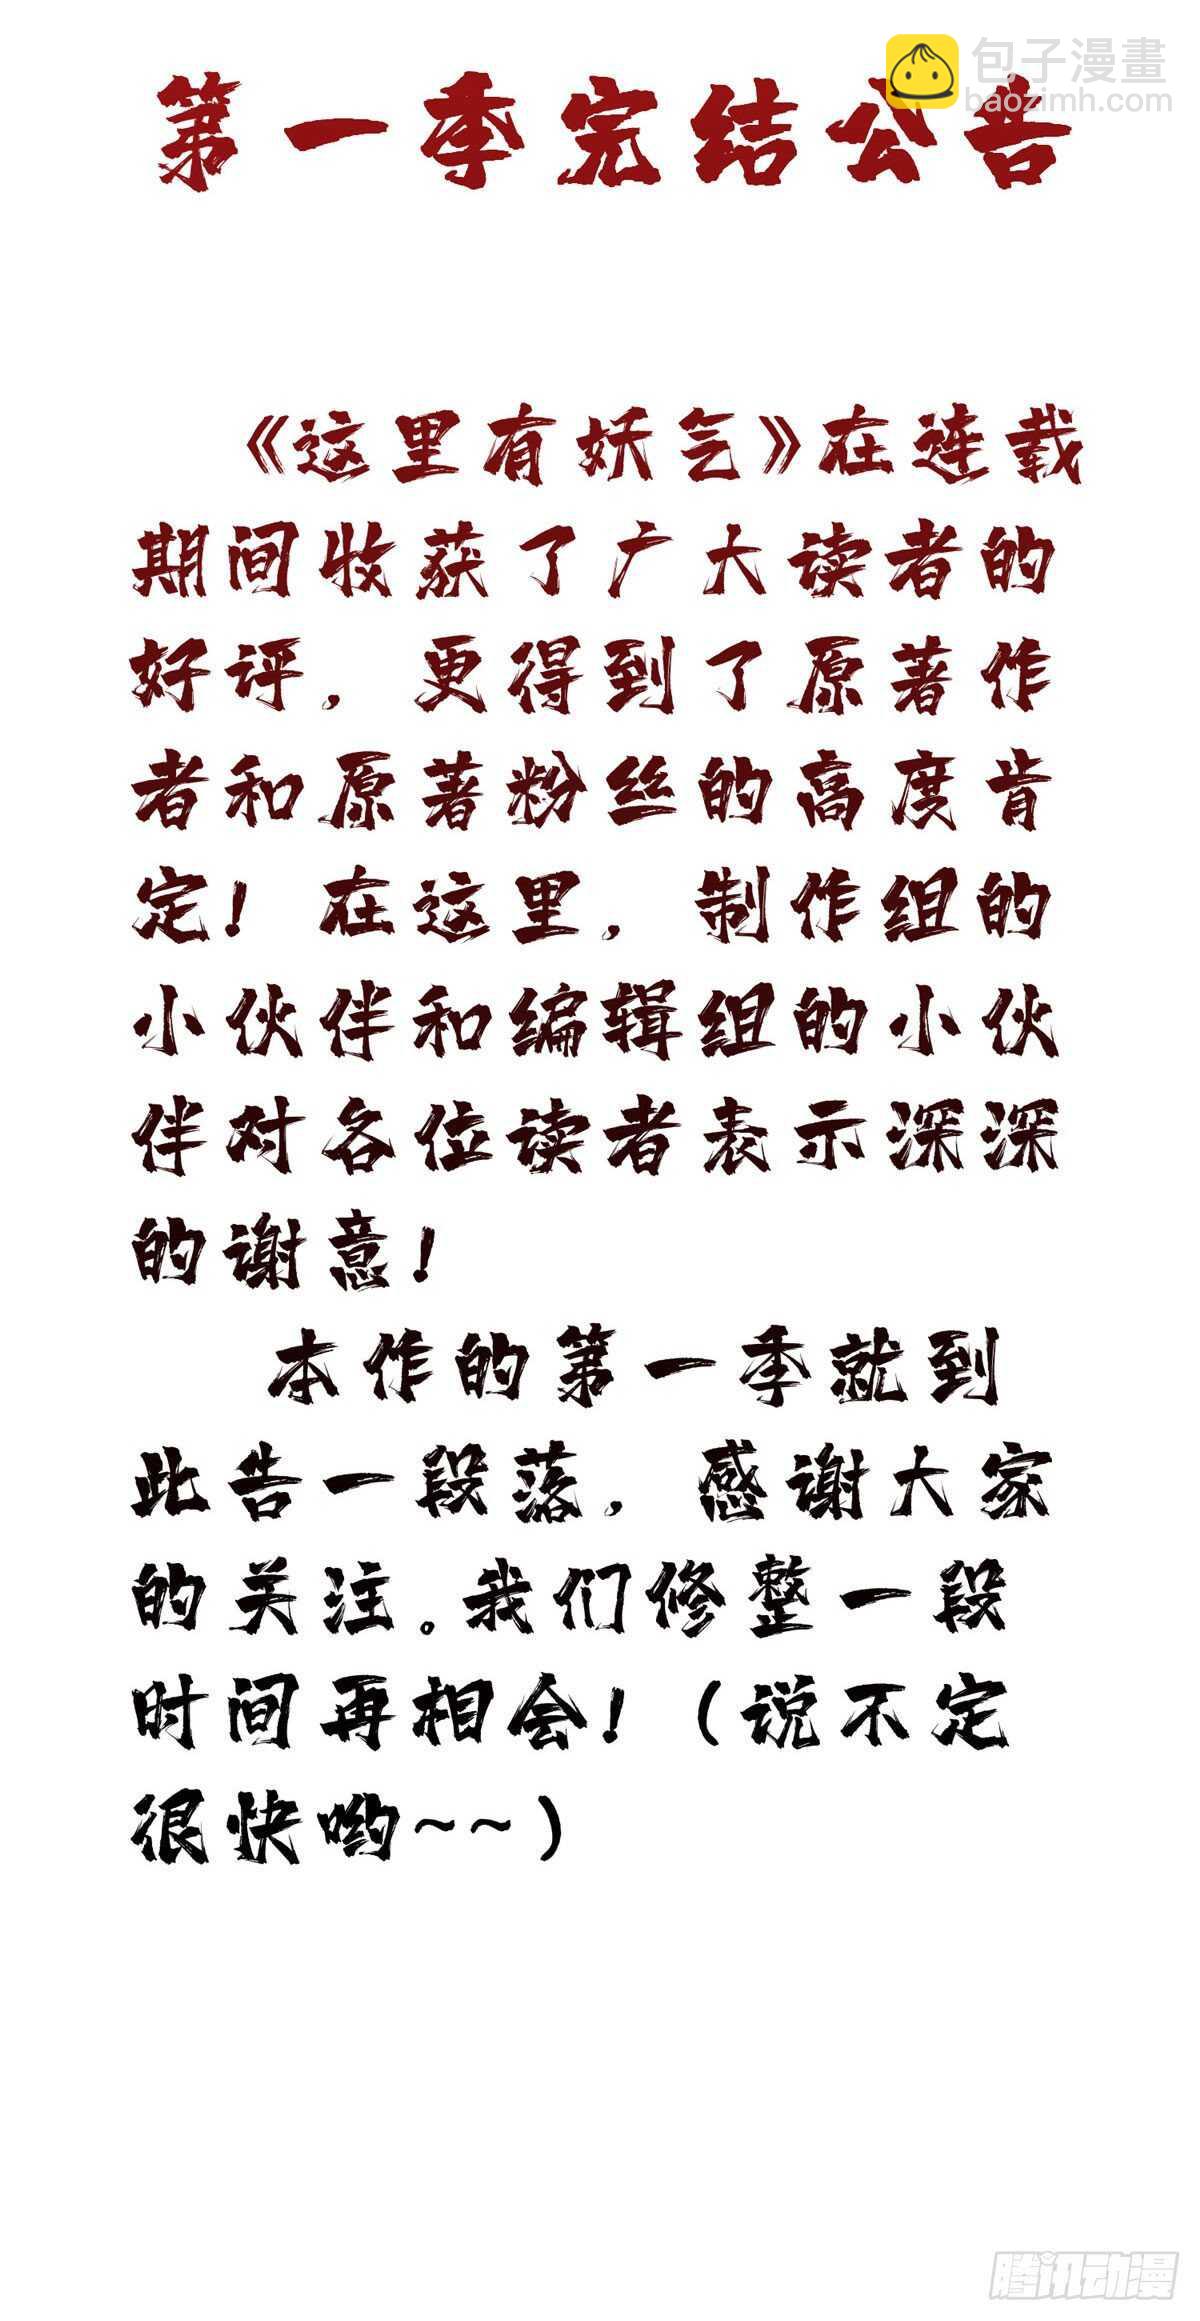 包子漫畫
baozimh.com
第一季完结公告
《这里有妖气》在连载
期间收获了广大读者的
好评，更得到了原著作
者和原著粉丝的高度肯
定！在这里，制作组的
小伙伴和编辑组的小伙
伴对各位读者表示深深
的谢意！
本作的第一季就到
此告一段落，感谢大家
的关注。我们修整一段
时间再相会！（说不定
很快哟~~）
腾讯动漫